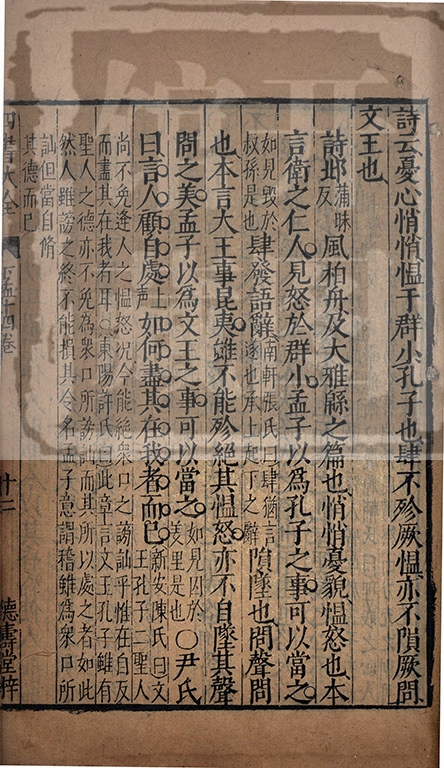 詩云憂心悄悄慍于群小孔子也肆不殄厥慍亦不隕厥問
文王也
詩邶蒲昧反風柏舟及大雅緜之篇也悄悄憂貌慍怒也本
言衛之仁人見怒於群小孟子以為孔子之事可以當之
如見毀於叔孫是也肆發語辭南軒張氏曰肆猶言遂也承上起下之辭隕墜也問聲問
也本言大王事昆夷雖不能殄絕其慍怒亦不自墜其聲
問之美孟子以為文王之事可以當之如見囚於羑里是也○尹氏
曰言人顧自處上聲如何盡其在我者而已新安陳氏曰文王孔子二聖人
尚不免逢人之慍怒況今能絕衆口之謗訕乎惟在自反
而盡其在我者耳○東陽許氏曰此章言文王孔子雖有
聖人之德亦不免為衆口所謗訕而其所以處之者如此
然人雖謗之終不能損其令名孟子意謂稽雖為衆口所
訕但當自脩
其德而已
四書大全 下孟十四卷 十二 德壽堂梓